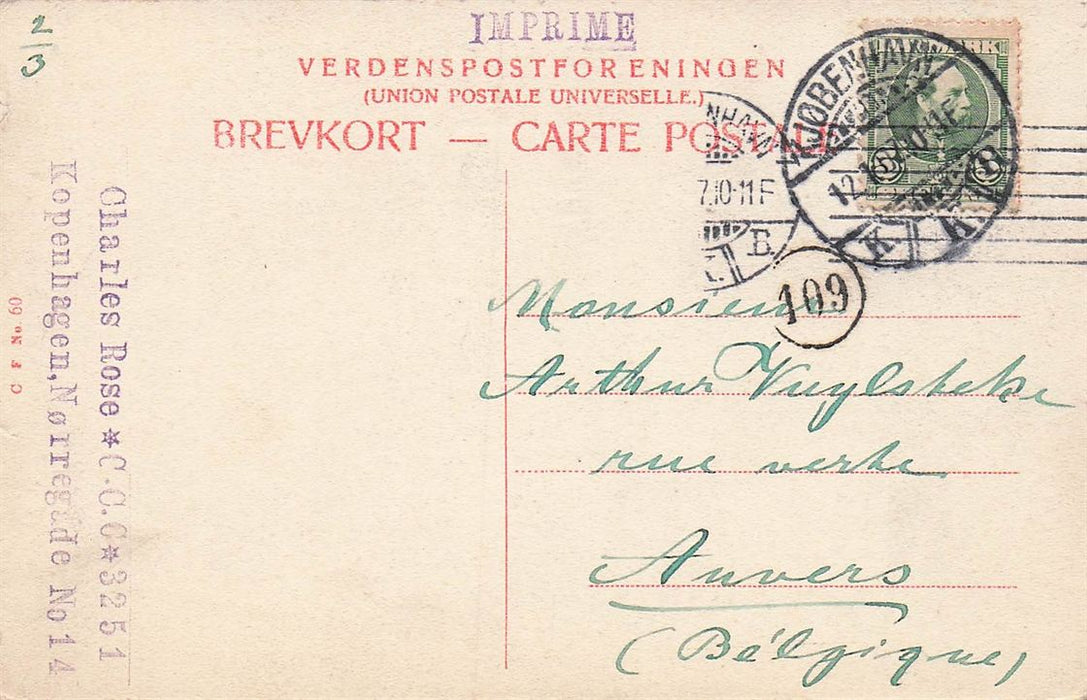 2/3
IMPRIME
VERDENSPOSTFORENINGEN
(UNION POSTALE UNIVERSELLE.)
BREVKORT — CARTE POSTALE
KJØBENHAVN
K.
K.B
NHAVN
7.10-11F
B.
109
Monsieur
Arthur Vuylsteke
rue verte
Anvers
(Bélgique)
Charles Rose ★ C.C.C ★ 3251
Kopenhagen, Nørregade No 14
C F No. 60